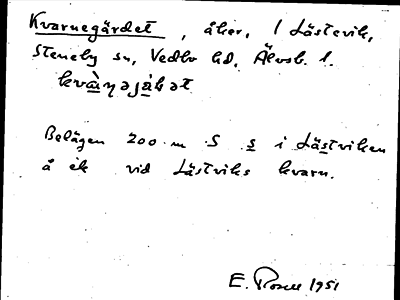 Kvarnegärdet, åker, 1 Lästvik,
Steneby sn, Vedbo hd, Älvsb. l.
Belägen 200 m S s i Lästviken
å ek vid Lästviks kvarn.
E. Rosell 1951